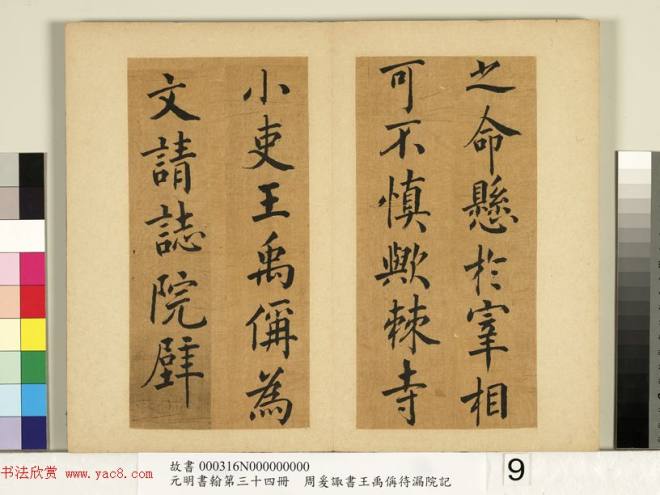 之命懸於宰相
可不慎歟棘寺
小吏王禹偁為
文請誌院壁
故書 000316N000000000
元明書翰第三十四冊 周爰諏書王禹偁待漏院記
9
书法欣赏 www.yac8.com